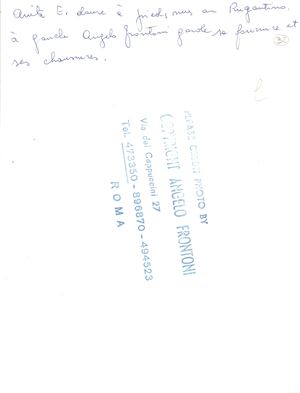 Anita E. danse à pieds nus au Rugantino.
à gauche Angelo Frontoni garde sa fourrure et
ses chaussures.
PLEASE CREDIT PHOTO BY
COPYRIGHT ANGELO FRONTONI
Via dei Cappuccini 27
Tel. 473350 - 896870 - 494523
ROMA